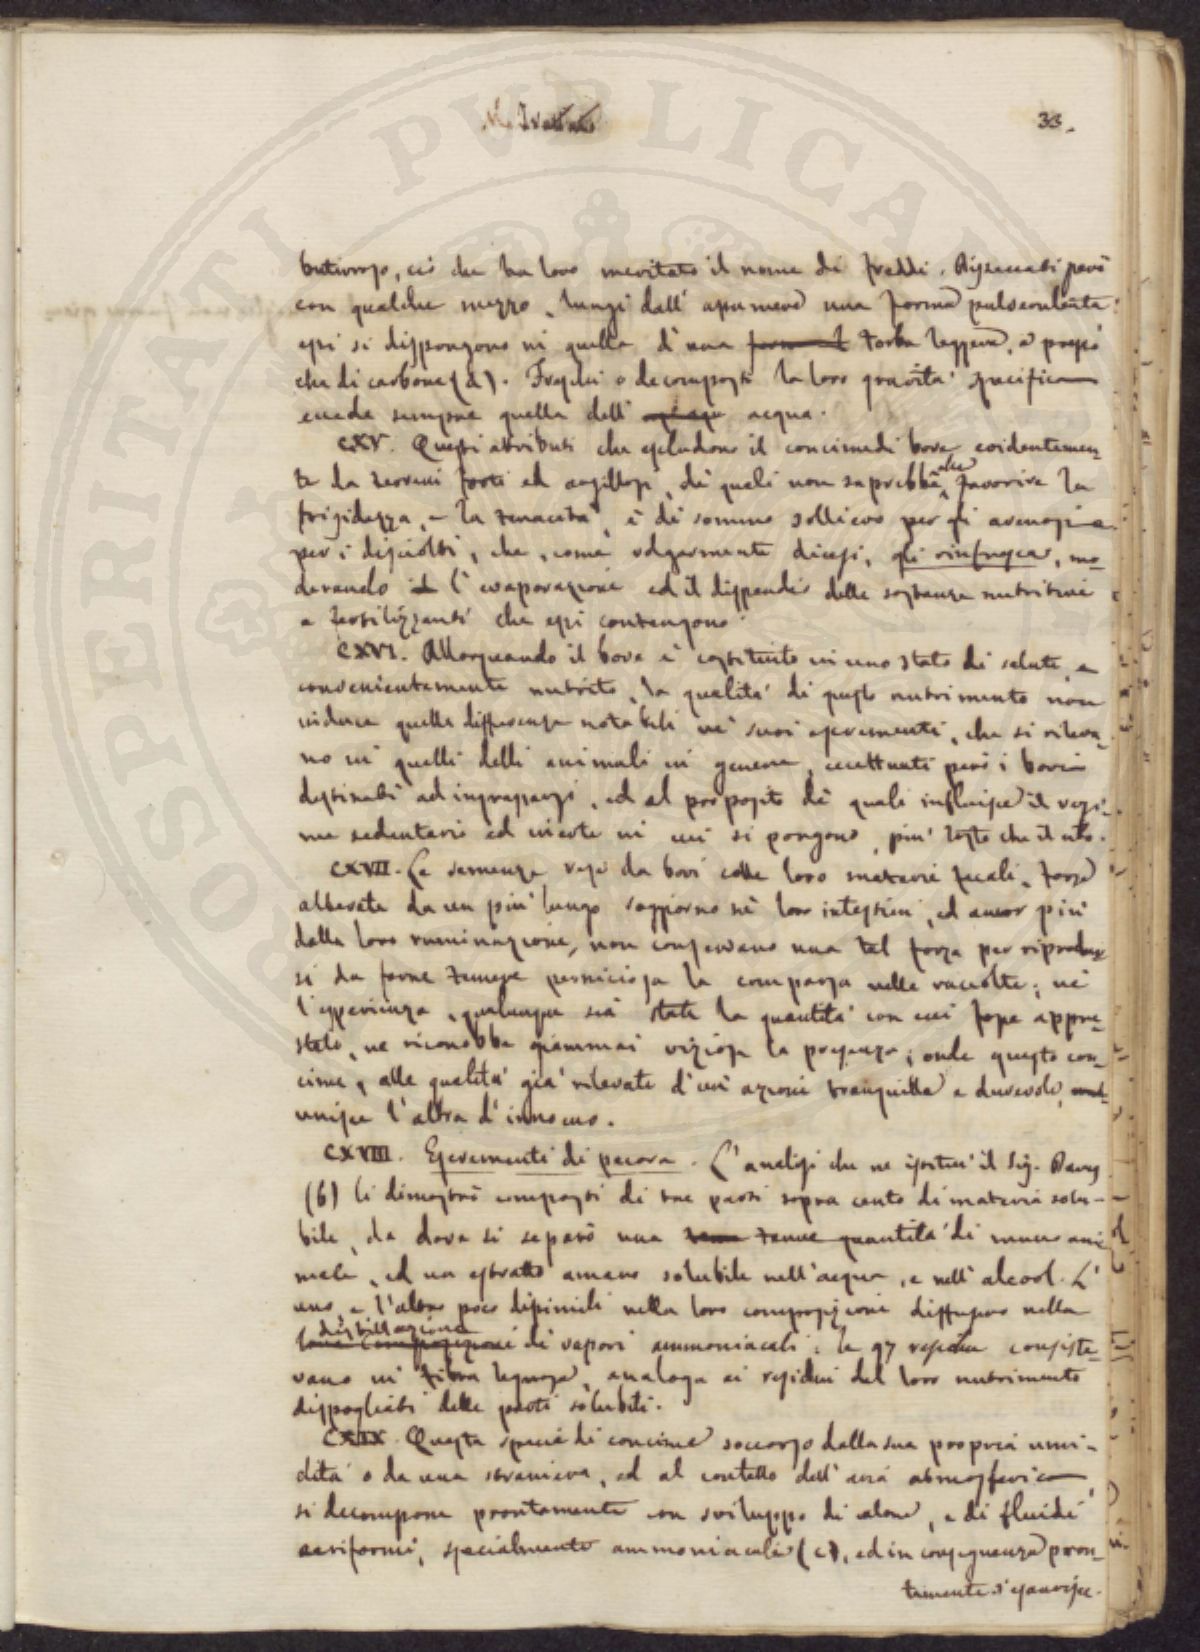 33.
butirroso, ciò che ha loro meritato il nome di freddi. Disseccati però
con qualche mezzo, lungi dall' assumere una forma pulverulenta
essi si dispongono in quella d' una torba leggera, e presso
che di carbone (a). Freschi o decomposti la loro gravità specifica
eccede sempre quella dell' acqua.
CXV. Questi attributi che escludono il concime di bove evidentemen-
te da terreni forti ed argillosi, de' quali non saprebbe, che favorire la
frigidezza, e la tenacità, è di sommo sollievo per gli arenosi e
per i disciolti, che, come volgarmente dicesi, gli rinfresca, mo-
derando l' evaporazione ed il dispendio delle sostanze nutritive
e fertilizzanti che essi contengono.
CXVI. Allorquando il bove è costituito in uno stato di salute, e
convenientemente nutrito, la qualità di questo nutrimento non
induce quelle differenze notabili ne' suoi escrementi, che si rileva-
no in quelli delli animali in genere, eccettuati però i bovi
destinati ad ingrassarsi, ed al proposito de' quali influisce il regi-
me sedentario ed inerte in cui si pongono, più tosto che il cibo.
CXVII. Le semenze rese da bovi colle loro materie fecali, forse
alterate da un più lungo soggiorno ne' loro intestini, ed ancor più
dalla loro ruminazione, non conservano una tal forza per riprodur
si da farne temere perniciosa la comparsa nelle raccolte; nè
l' esperienza, qualunque sia stata la quantità con cui fosse appre-
stato, ne riconobbe giammai viziosa la presenza; onde questo con-
cime, alle qualità già rilevate d' un' azione tranquilla e durevole,
unisce l' altra d' innocuo.
CXVIII. Escrementi di pecora. L' analisi che ne istituì il Sig. Davy
(b) li dimostrò composti di tre parti sopra cento di materia solu-
bile, da dove si separò una tenue quantità di muco ani
male, ed un estratto amaro solubile nell' acqua, e nell' alcool. L'
uno, e l' altro poco dissimili nella loro composizione diffusero nella
distillazione
loro composizione di vapori ammoniacali: le 97 residue consiste-
vano in fibra legnosa, analoga ai residui del loro nutrimento
dispogliati delle parti solubili.
CXIX. Questa specie di concime soccorso dalla sua propria umi-
dità o da una straniera, ed al contatto dell' aria atmosferica,
si decompone prontamente con sviluppo di calore, e di fluidi
aeriformi, specialmente ammoniacali (c), ed in conseguenza pron-
tamente s' esaurisce.